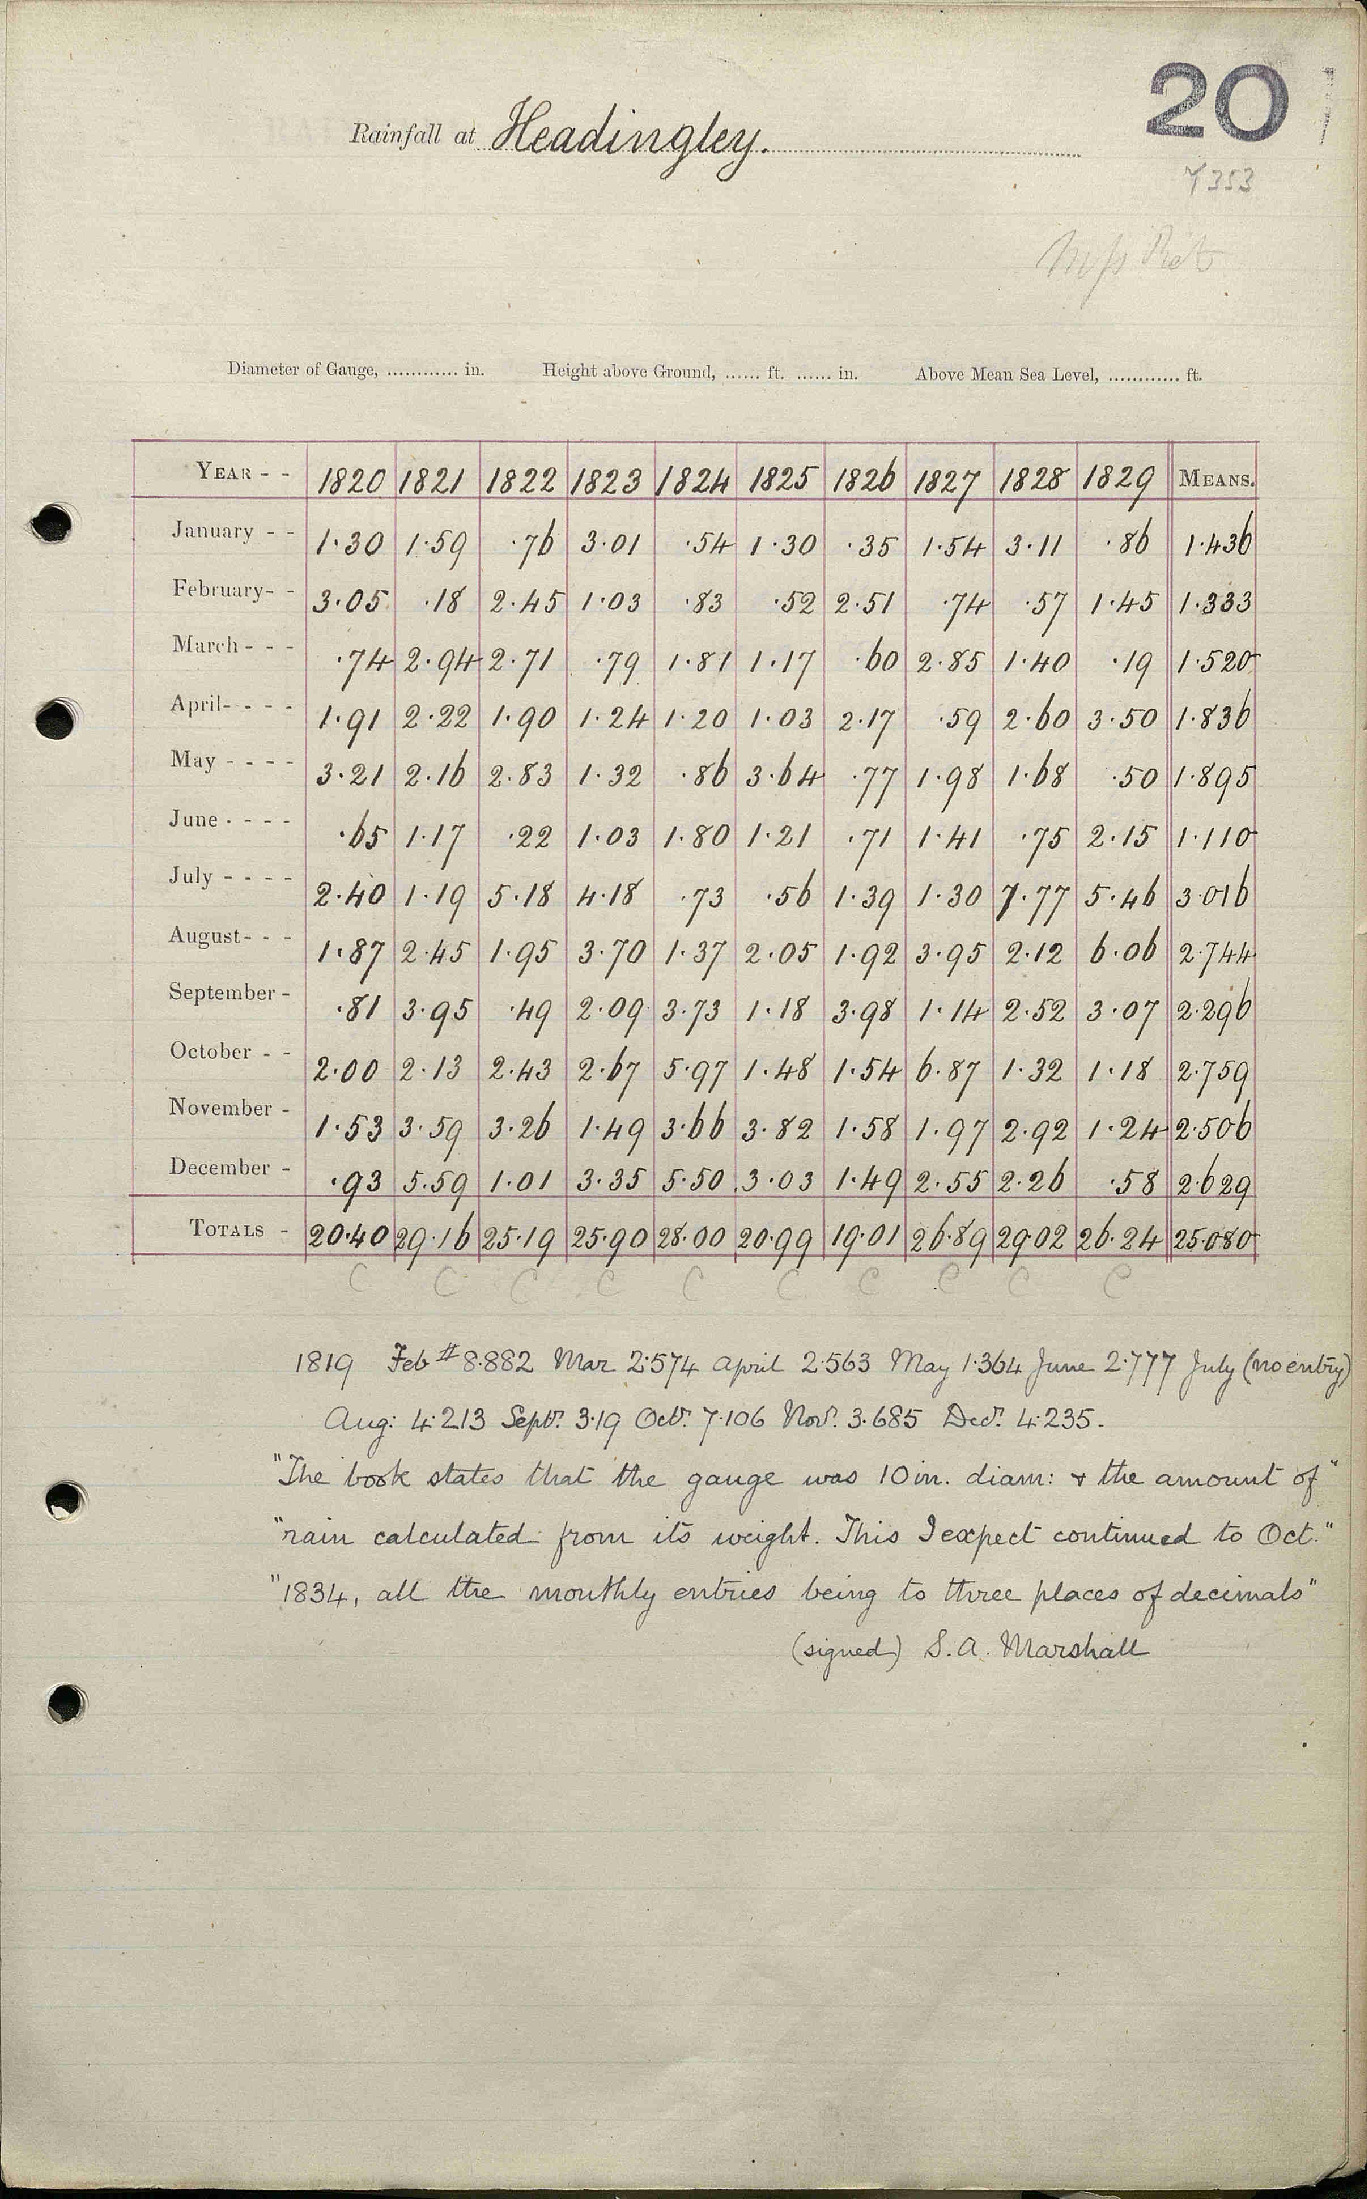 20
Rainfall at Headingley.
7353
Diameter of Gauge, ............ in. Height above Ground, ...... ft. ...... in. Above Mean Sea Level, ............ ft.
YEAR - - 1820 1821 1822 1823 1824 1825 1826 1827 1828 1829 MEANS.
January - - 1.30 1.59 .76 3.01 .54 1.30 .35 1.54 3.11 .86 1.436
February- - 3.05 .18 2.45 1.03 .83 .52 2.51 .74 .57 1.45 1.333
March - - - .74 2.94 2.71 .79 1.81 1.17 .60 2.85 1.40 .19 1.520
April- - - - 1.91 2.22 1.90 1.24 1.20 1.03 2.17 .59 2.60 3.50 1.836
May - - - - 3.21 2.16 2.83 1.32 .86 3.64 .77 1.98 1.68 .50 1.895
June - - - - .65 1.17 .22 1.03 1.80 1.21 .71 1.41 .75 2.15 1.110
July - - - - 2.40 1.19 5.18 4.18 .73 .56 1.39 1.30 7.77 5.46 3.016
August- - - 1.87 2.45 1.95 3.70 1.37 2.05 1.92 3.95 2.12 6.06 2.744
September - .81 3.95 .49 2.09 3.73 1.18 3.98 1.14 2.52 3.07 2.296
October - - 2.00 2.13 2.43 2.67 5.97 1.48 1.54 6.87 1.32 1.18 2.759
November - 1.53 3.59 3.26 1.49 3.66 3.82 1.58 1.97 2.92 1.24 2.506
December - .93 5.59 1.01 3.35 5.50 3.03 1.49 2.55 2.26 .58 2.629
TOTALS - 20.40 29.16 25.19 25.90 28.00 20.99 19.01 26.89 29.02 26.24 25.080
C C C C C C C C C C
1819 Feb # 8.882 Mar 2.574 April 2.563 May 1.364 June 2.777 July (no entry)
Aug: 4.213 Sept. 3.19 Oct. 7.106 Nov. 3.685 Dec. 4.235.
"The book states that the gauge was 10 in. diam: & the amount of"
"rain calculated from its weight. This I expect continued to Oct."
"1834, all the monthly entries being to three places of decimals"
(signed) S. A. Marshall